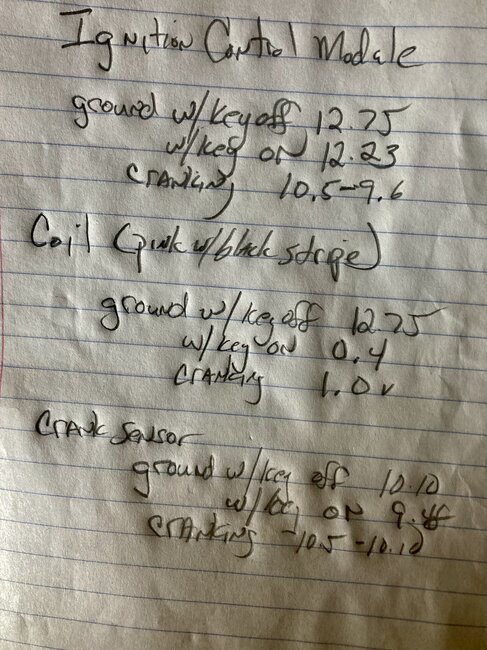 Ignition Control Module
ground w/key off 12.75
w/key on 12.23
cranking 10.5-9.6
Coil (pink w/black stripe)
ground w/key off 12.75
w/key on 0.4
cranking 1.0v
Crank Sensor
ground w/key off 10.10
w/key on 9.
cranking -10.5 -10.10